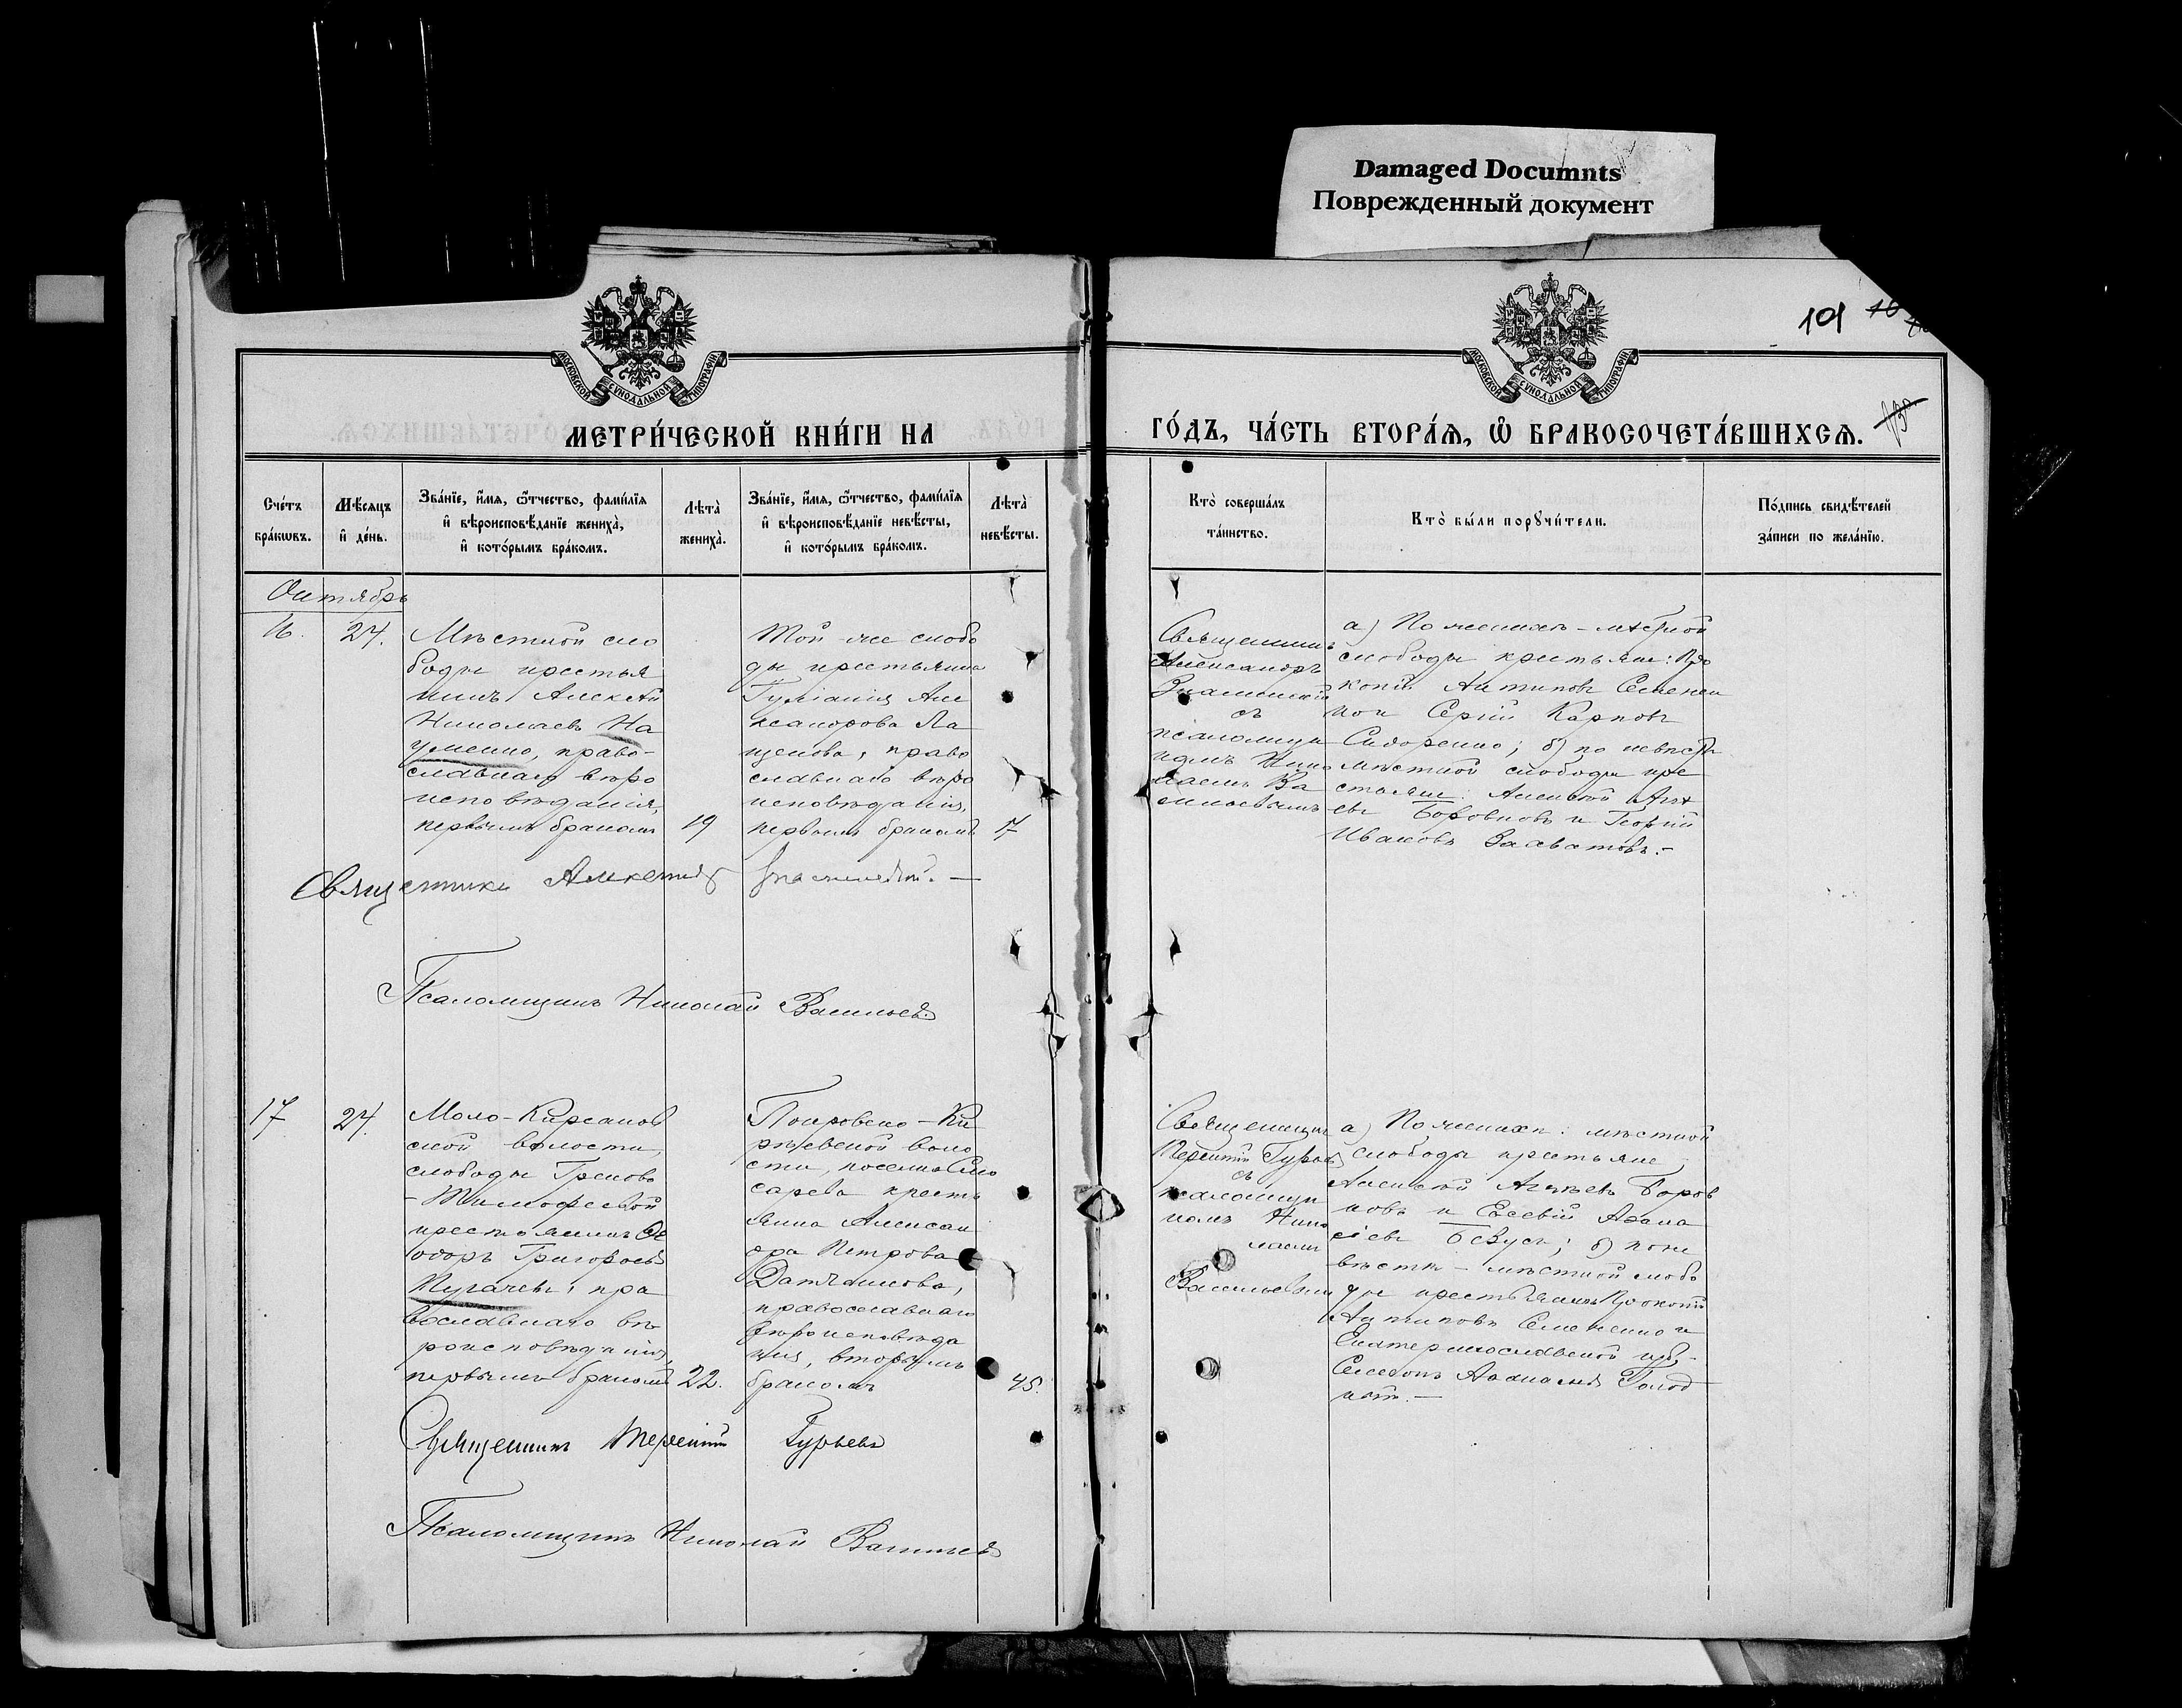 Damaged Documnts
Поврежденный документ
101
МОСКОВСКОЙ СѴНОДАЛЬНОЙ ТИПОГРАФІИ
МОСКОВСКОЙ СѴНОДАЛЬНОЙ ТИПОГРАФІИ
МЕТРИ́ЧЕСКОЙ КНИ́ГИ НА
ГО́ДЪ, ЧА́СТЬ ВТОРА́Ѧ, Ѽ БРАКОСОЧЕТА́ВШИХСѦ.
Сче́тъ бра́кѡвъ.
Мѣ́сяцъ и҆ де́нь.
Зва́нїе, и҆́мя, ѻ҆́тчество, фами́лїя
и҆ вѣроисповѣ́данїе жениха̀,
и҆ кото́рымъ бра́комъ.
Лѣта̀ жениха̀.
Зва́нїе, и҆́мя, ѻ҆́тчество, фами́лїя
и҆ вѣроисповѣ́данїе невѣ́сты,
и҆ кото́рымъ бра́комъ.
Лѣта̀ невѣ́сты.
Кто̀ соверша́лъ та́инство.
Кто̀ бы́ли порꙋчи́тели.
По́дпись свидѣ́телей за́писи по жела́нїю.
Октябрь
16.
24.
Мѣстной сло
боды крестья
нинъ Алексѣй
Николаевъ На
уменко, право-
славнаго вѣро
исповѣданія,
первымъ бракомъ
19
Той же слобо
ды крестьянка
Гликерія Але
ксандрова Ла
щенова, право
славнаго вѣро
исповѣданія,
первымъ бракомъ
17
Священникъ
Александръ
Знаменскій
съ
псаломщи
комъ Нико
лаемъ Ва
сильевымъ
а) По женихѣ - мѣстной
слободы крестьяне: Про
копій Антиповъ Семенен
ко и Сергій Карповъ
Сидоренко; б) по невѣстѣ
мѣстной слободы кре
стьяне: Алексѣй Агѣ
евъ Боровковъ и Георгій
Ивановъ Захватовъ.-
Священникъ Александръ Знаменскій. —
Псаломщикъ Николай Васильевъ
17
24.
Мало-Кирсанов
ской волости,
слободы Греково
-Тимофеевой
крестьянинъ Ѳе
одоръ Григорьевъ
Пугачевъ, пра
вославнаго вѣ
роисповѣданія,
первымъ бракомъ
22.
Покровско-Ки
рѣевской воло
сти, поселка Слю
сарева кресть
янка Алексан
дра Петрова
православнаго
вѣроисповѣда
нія, вторымъ
бракомъ
45.
Священникъ
Терентій Гурьевъ
съ
псаломщи
комъ Нико
лаемъ
Васильевымъ
а) По женихѣ: мѣстной
слободы крестьяне
Алексѣй Агѣевъ Боров
ковъ и Евсевій Афана
сіевъ Безусъ; б) по не
вѣстѣ - мѣстной слобо
ды крестьянинъ Прокопій
Антиповъ Семененко и
Екатеринославской губ.
Священникъ Терентій Гурьевъ
Псаломщикъ Николай Васильевъ